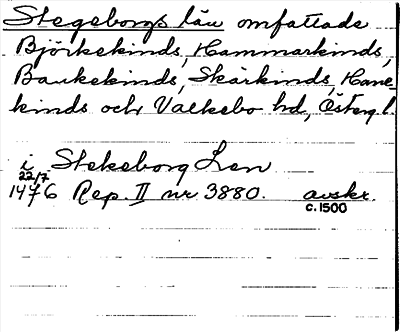 Stegeborgs län omfattade
Björkekinds, Hammarkinds,
Bankekinds, Skärkinds, Hane-
kinds och Valkebo hd, Östergl.
i Stekeborg Len
22/7
1476 Rep. II nr 3880. avskr.
c. 1500